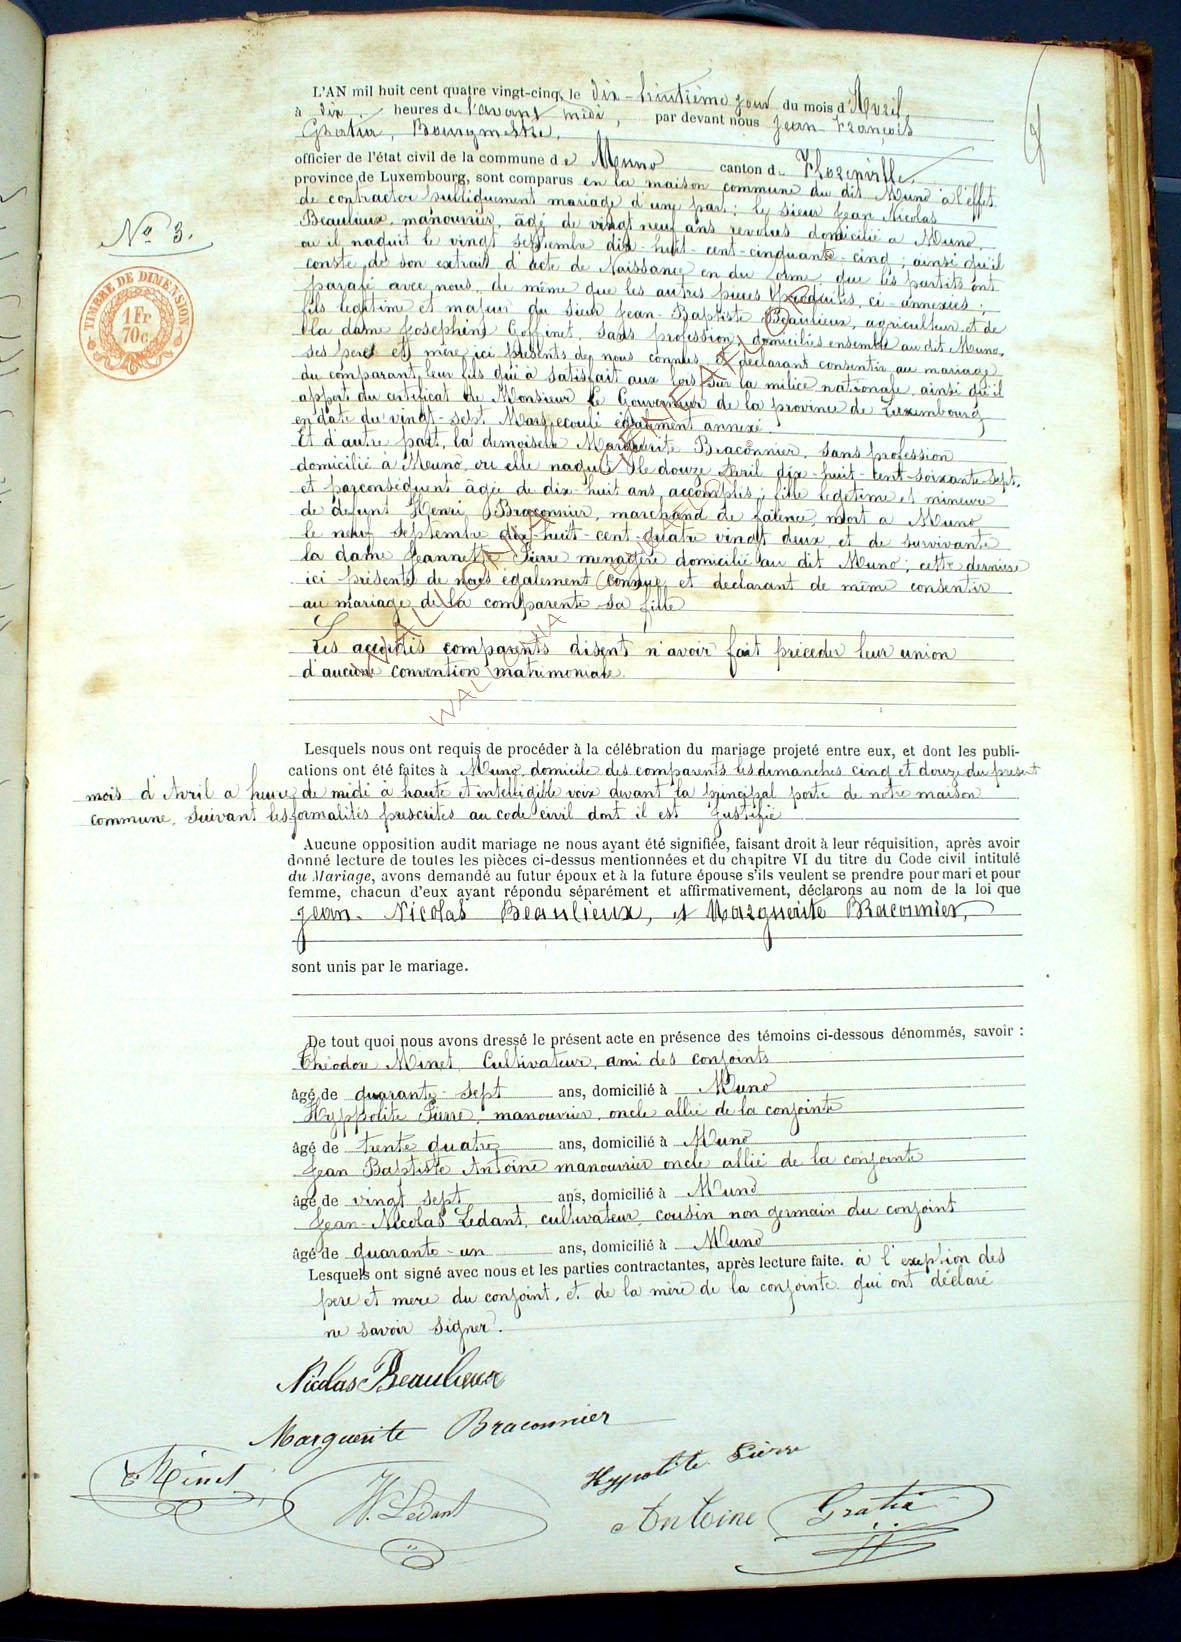 L'AN mil huit cent quatre vingt-cinq, le dix-huitième jour du mois d'Avril
à dix heures de l'avant midi, par devant nous Jean François
Gratia, Bourgmestre,
officier de l'état civil de la commune de Muno canton de Florenville,
province de Luxembourg, sont comparus en la maison commune du dit Muno à l'effet
de contracter publiquement mariage d'une part: le sieur Jean Nicolas
Beaulieux, manouvrier, âgé de vingt neuf ans revolus domicilié a Muno,
ou il naquit le vingt septembre dix-huit-cent-cinquante-cinq; ainsi qu'il
conste de son extrait d'acte de Naissance en du forme que les parties ont
parafé avec nous, de même que les autres pieces produites, ci-annexées;
fils legitime et majeur du sieur Jean-Baptiste Beaulieux, agriculteur, et de
la dame Josephine Goffinet, sans profession, domiciliés ensemble au dit Muno,
ses pere et mère ici présents de nous connus et declarant consentir au mariage
du comparant leur fils qui à satisfait aux lois sur la milice nationale, ainsi qu'il
appert du certificat de Monsieur le Gouverneur de la province de Luxembourg
en date du vingt-sept Mars ecoulé également annexé
Et d'autre part, la demoiselle Marguerite Braconnier, sans profession
domicilié à Muno, ou elle naquit le douze Avril dix-huit-cent-soixante-sept,
et parconséquent âgée de dix-huit ans accomplis; fille legetime et mineure
de defunt Henri Braconnier, marchand de faïence, mort a Muno
le neuf septembre dix-huit-cent-quatre vingt deux, et de survivante
la dame Jeannette Pierre menagère domicilié au dit Muno; cette dernière
ici présente de nous également connue et declarant de même consentir
au mariage de la comparente sa fille
Les accordés comparents disent n'avoir fait préceder leur union
d'aucune convention matrimoniale.
Nº 3.
TIMBRE DE DIMENSION
1 Fr
70c.
Lesquels nous ont requis de procéder à la célébration du mariage projeté entre eux, et dont les publi-
cations ont été faites à Muno, domicile des comparents les dimanches cinq et douze du present
mois d'Avril a heure de midi à haute et intelligible voix devant la principal porte de notre maison
commune, suivant les formalités prescrites au code civil dont il est justifié
Aucune opposition audit mariage ne nous ayant été signifiée, faisant droit à leur réquisition, après avoir
donné lecture de toutes les pièces ci-dessus mentionnées et du chapitre VI du titre du Code civil intitulé
du Mariage, avons demandé au futur époux et à la future épouse s'ils veulent se prendre pour mari et pour
femme, chacun d'eux ayant répondu séparément et affirmativement, déclarons au nom de la loi que
Jean-Nicolas Beaulieux, et Marguerite Braconnier,
sont unis par le mariage.
De tout quoi nous avons dressé le présent acte en présence des témoins ci-dessous dénommés, savoir :
Théodore Minet, Cultivateur, ami des conjoints
âgé de quarante-sept ans, domicilié à Muno
Hyppolite Pierre, manouvrier, oncle allié de la conjointe
âgé de trente quatre ans, domicilié à Muno
Jean Baptiste Antoine manouvrier oncle allié de la conjointe
âgé de vingt sept ans, domicilié à Muno
Jean-Nicolas Ledant, cultivateur, cousin non germain du conjoint
âgé de quarante-un ans, domicilié à Muno
Lesquels ont signé avec nous et les parties contractantes, après lecture faite. à l'exeption des
pere et mere du conjoint, et de la mère de la conjointe qui ont déclaré
ne savoir signer.
Nicolas Beaulieux
Marguerite Braconnier
Minet
Ledant
Hyppolite Pierre
Antoine
Gratia